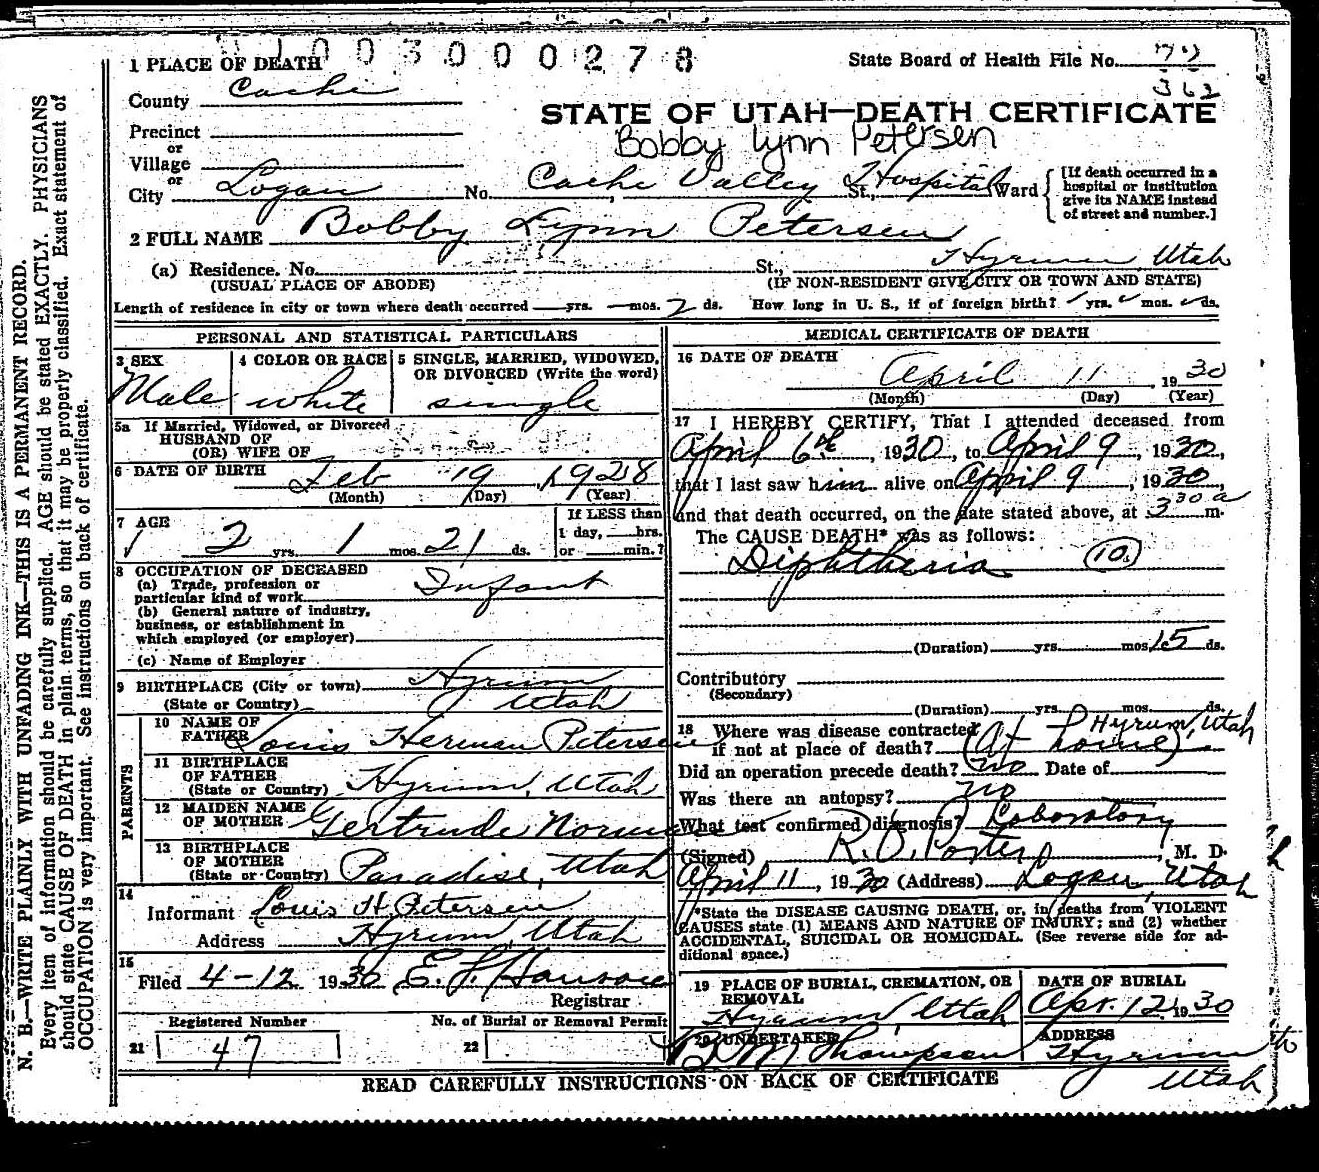 1003000278
1 PLACE OF DEATH
State Board of Health File No.
362
County Cache
STATE OF UTAH—DEATH CERTIFICATE
Precinct
Bobby Lynn Petersen
or
Village
or
City Logan No. Cache Valley Hospital St., Ward
[If death occurred in a hospital or institution give its NAME instead of street and number.]
2 FULL NAME Bobby Lynn Petersen
(a) Residence. No. St., Hyrum, Utah
(USUAL PLACE OF ABODE) (IF NON-RESIDENT GIVE CITY OR TOWN AND STATE)
Length of residence in city or town where death occurred — yrs. — mos. 2 ds. How long in U. S., if of foreign birth? yrs. mos. ds.
PERSONAL AND STATISTICAL PARTICULARS
3 SEX 4 COLOR OR RACE 5 SINGLE, MARRIED, WIDOWED,
OR DIVORCED (Write the word)
Male white single
5a If Married, Widowed, or Divorced
HUSBAND OF
(OR) WIFE OF
6 DATE OF BIRTH Feb 19, 1928
(Month) (Day) (Year)
7 AGE If LESS than
2 yrs. 1 mos. 21 ds. 1 day, hrs.
or min.?
8 OCCUPATION OF DECEASED
(a) Trade, profession or
particular kind of work Infant
(b) General nature of industry,
business, or establishment in
which employed (or employer)
(c) Name of Employer
9 BIRTHPLACE (City or town) Hyrum
(State or Country) Utah
PARENTS
10 NAME OF
FATHER Louis Herman Petersen
11 BIRTHPLACE
OF FATHER
(State or Country) Hyrum, Utah
12 MAIDEN NAME
OF MOTHER Gertrude
13 BIRTHPLACE
OF MOTHER
(State or Country) Paradise, Utah
14
Informant Louis H Petersen
Address Hyrum, Utah
15
Filed 4-12 1930
Registrar
Registered Number No. of Burial or Removal Permit
21 47 22
MEDICAL CERTIFICATE OF DEATH
16 DATE OF DEATH
April 11, 1930
(Month) (Day) (Year)
17 I HEREBY CERTIFY, That I attended deceased from
April 6th, 1930, to April 9, 1930,
that I last saw him alive on April 9, 1930,
and that death occurred, on the date stated above, at 3 30 a m.
The CAUSE DEATH* was as follows:
Diphtheria (10)
(Duration) yrs. mos. 15 ds.
Contributory
(Secondary)
(Duration) yrs. mos. ds.
18 Where was disease contracted Hyrum, Utah
if not at place of death? (At home)
Did an operation precede death? no Date of
Was there an autopsy? no
What test confirmed diagnosis? Laboratory
(Signed) R. O. Porter, M. D.
April 11, 1930 (Address) Logan, Utah
*State the DISEASE CAUSING DEATH, or, in deaths from VIOLENT
CAUSES state (1) MEANS AND NATURE OF INJURY; and (2) whether
ACCIDENTAL, SUICIDAL OR HOMICIDAL. (See reverse side for ad-
ditional space.)
19 PLACE OF BURIAL, CREMATION, OR DATE OF BURIAL
REMOVAL
Hyrum, Utah Apr. 12, 1930
20 UNDERTAKER ADDRESS
Thompson Hyrum
Utah
READ CAREFULLY INSTRUCTIONS ON BACK OF CERTIFICATE
N. B.—WRITE PLAINLY WITH UNFADING INK—THIS IS A PERMANENT RECORD.
Every item of information should be carefully supplied. AGE should be stated EXACTLY. PHYSICIANS
should state CAUSE OF DEATH in plain terms, so that it may be properly classified. Exact statement of
OCCUPATION is very important. See instructions on back of certificate.